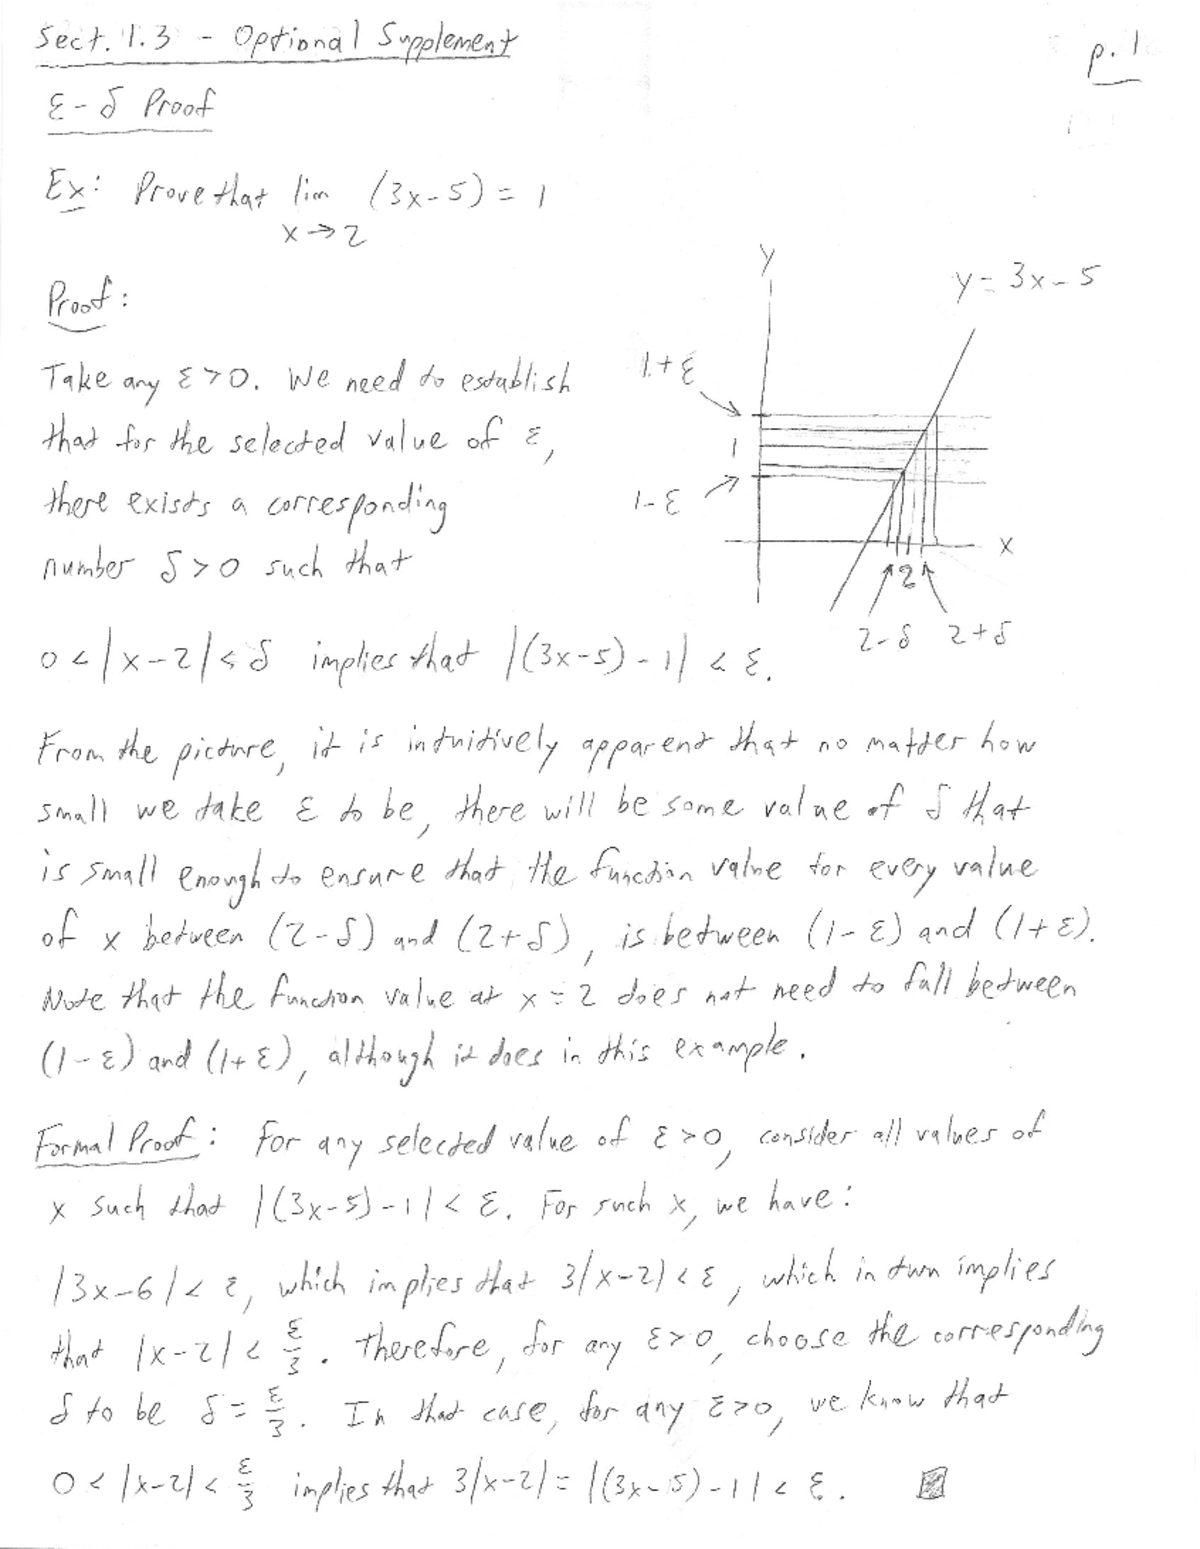 Sect. 1.3 - Optional Supplement
p. 1
ε-δ Proof
Ex: Prove that lim (3x-5) = 1
x→2
Proof:
y
y = 3x-5
Take any ε>0. We need to establish
1+ε
that for the selected value of ε,
1
there exists a corresponding
1-ε
number δ>0 such that
x
2
2-δ 2+δ
0<|x-2|<δ implies that |(3x-5)-1| < ε.
From the picture, it is intuitively apparent that no matter how
small we take ε to be, there will be some value of δ that
is small enough to ensure that the function value for every value
of x between (2-δ) and (2+δ), is between (1-ε) and (1+ε).
Note that the function value at x=2 does not need to fall between
(1-ε) and (1+ε), although it does in this example.
Formal Proof: For any selected value of ε>0, consider all values of
x such that |(3x-5)-1| < ε. For such x, we have:
|3x-6| < ε, which implies that 3|x-2| < ε, which in turn implies
that |x-2| < ε/3. Therefore, for any ε>0, choose the corresponding
δ to be δ = ε/3. In that case, for any ε>0, we know that
0 < |x-2| < ε/3 implies that 3|x-2| = |(3x-5)-1| < ε.